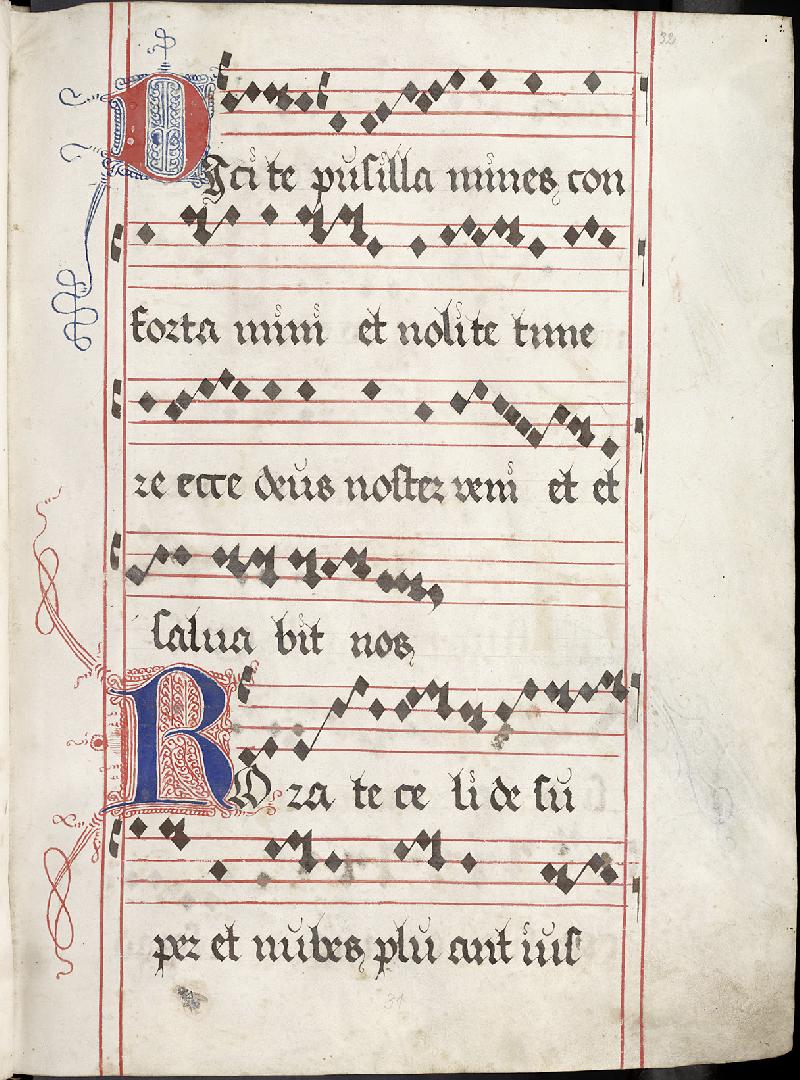 32
Dicite pusilla nimes con
forta mini et nolite time
re ecce deus noster veni et et
salua bit nos
Rorate celi de su
per et nubes plu ant iust
31